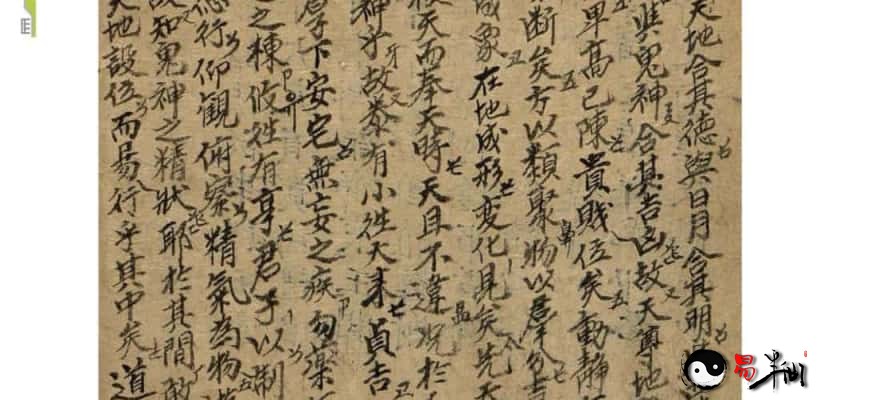 天地合其德與日月合其明
與鬼神合其吉凶故天尊地
卑高已陳貴賤位矣動靜
斷矣方以類聚物以羣分吉
成象在地成形變化見矣先天
天而奉天時天且不違况於
神乎故泰有小徃大来貞吉
君子下安宅無妄之疾勿藥
之棟攸徃有亨君子以制
行仰觀俯察精氣為物
故知鬼神之精狀耶於其間
天地設位而易行乎其中矣道
易半仙